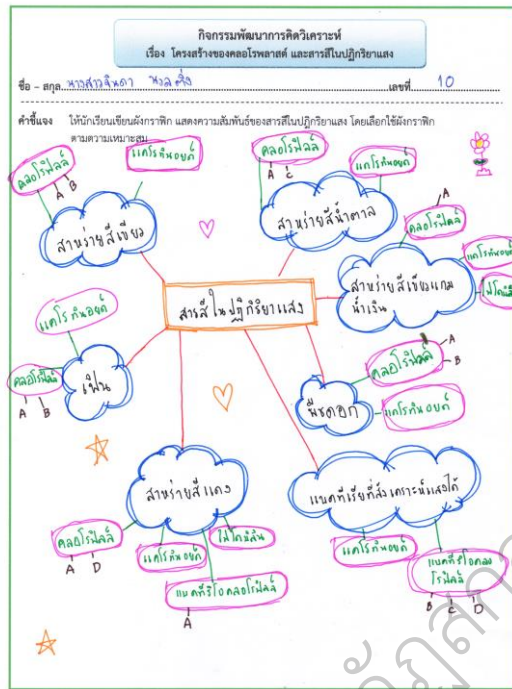 กิจกรรมพัฒนาการคิดวิเคราะห์
เรื่อง โครงสร้างของคลอโรพลาสต์ และสารสีในปฏิกิริยาแสง
ชื่อ – สกุล นางสาวจินดา เลขที่ 10
คำชี้แจง ให้นักเรียนเขียนผังกราฟิก แสดงความสัมพันธ์ของสารสีในปฏิกิริยาแสง โดยเลือกใช้ผังกราฟิก
ตามความเหมาะสม
คลอโรฟิลล์
A B
แคโรทีนอยด์
สาหร่ายสีเขียว
คลอโรฟิลล์
A C
แคโรทีนอยด์
สาหร่ายสีน้ำตาล
A
คลอโรฟิลล์
แคโรทีนอยด์
สาหร่ายสีเขียวแกม
น้ำเงิน
สารสีในปฏิกิริยาแสง
แคโรทีนอยด์
คลอโรฟิลล์
A B
เฟิน
คลอโรฟิลล์
A
B
แคโรทีนอยด์
พืชดอก
สาหร่ายสีแดง
คลอโรฟิลล์
A D
แคโรทีนอยด์
ไฟโคบิลิน
แบคทีริโอคลอโรฟิลล์
A
แบคทีเรียที่สังเคราะห์แสงได้
แคโรทีนอยด์
แบคทีริโอคลอ
โรฟิลล์
B C D